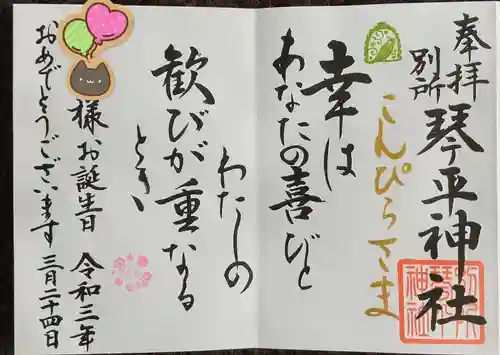 奉拝
別所
琴平神社
琴平神社別所
こんぴらさま
幸は
あなたの喜びと
わたしの
歓びが重なる
とき、
様お誕生日 令和三年
おめでとうございます 三月二十四日